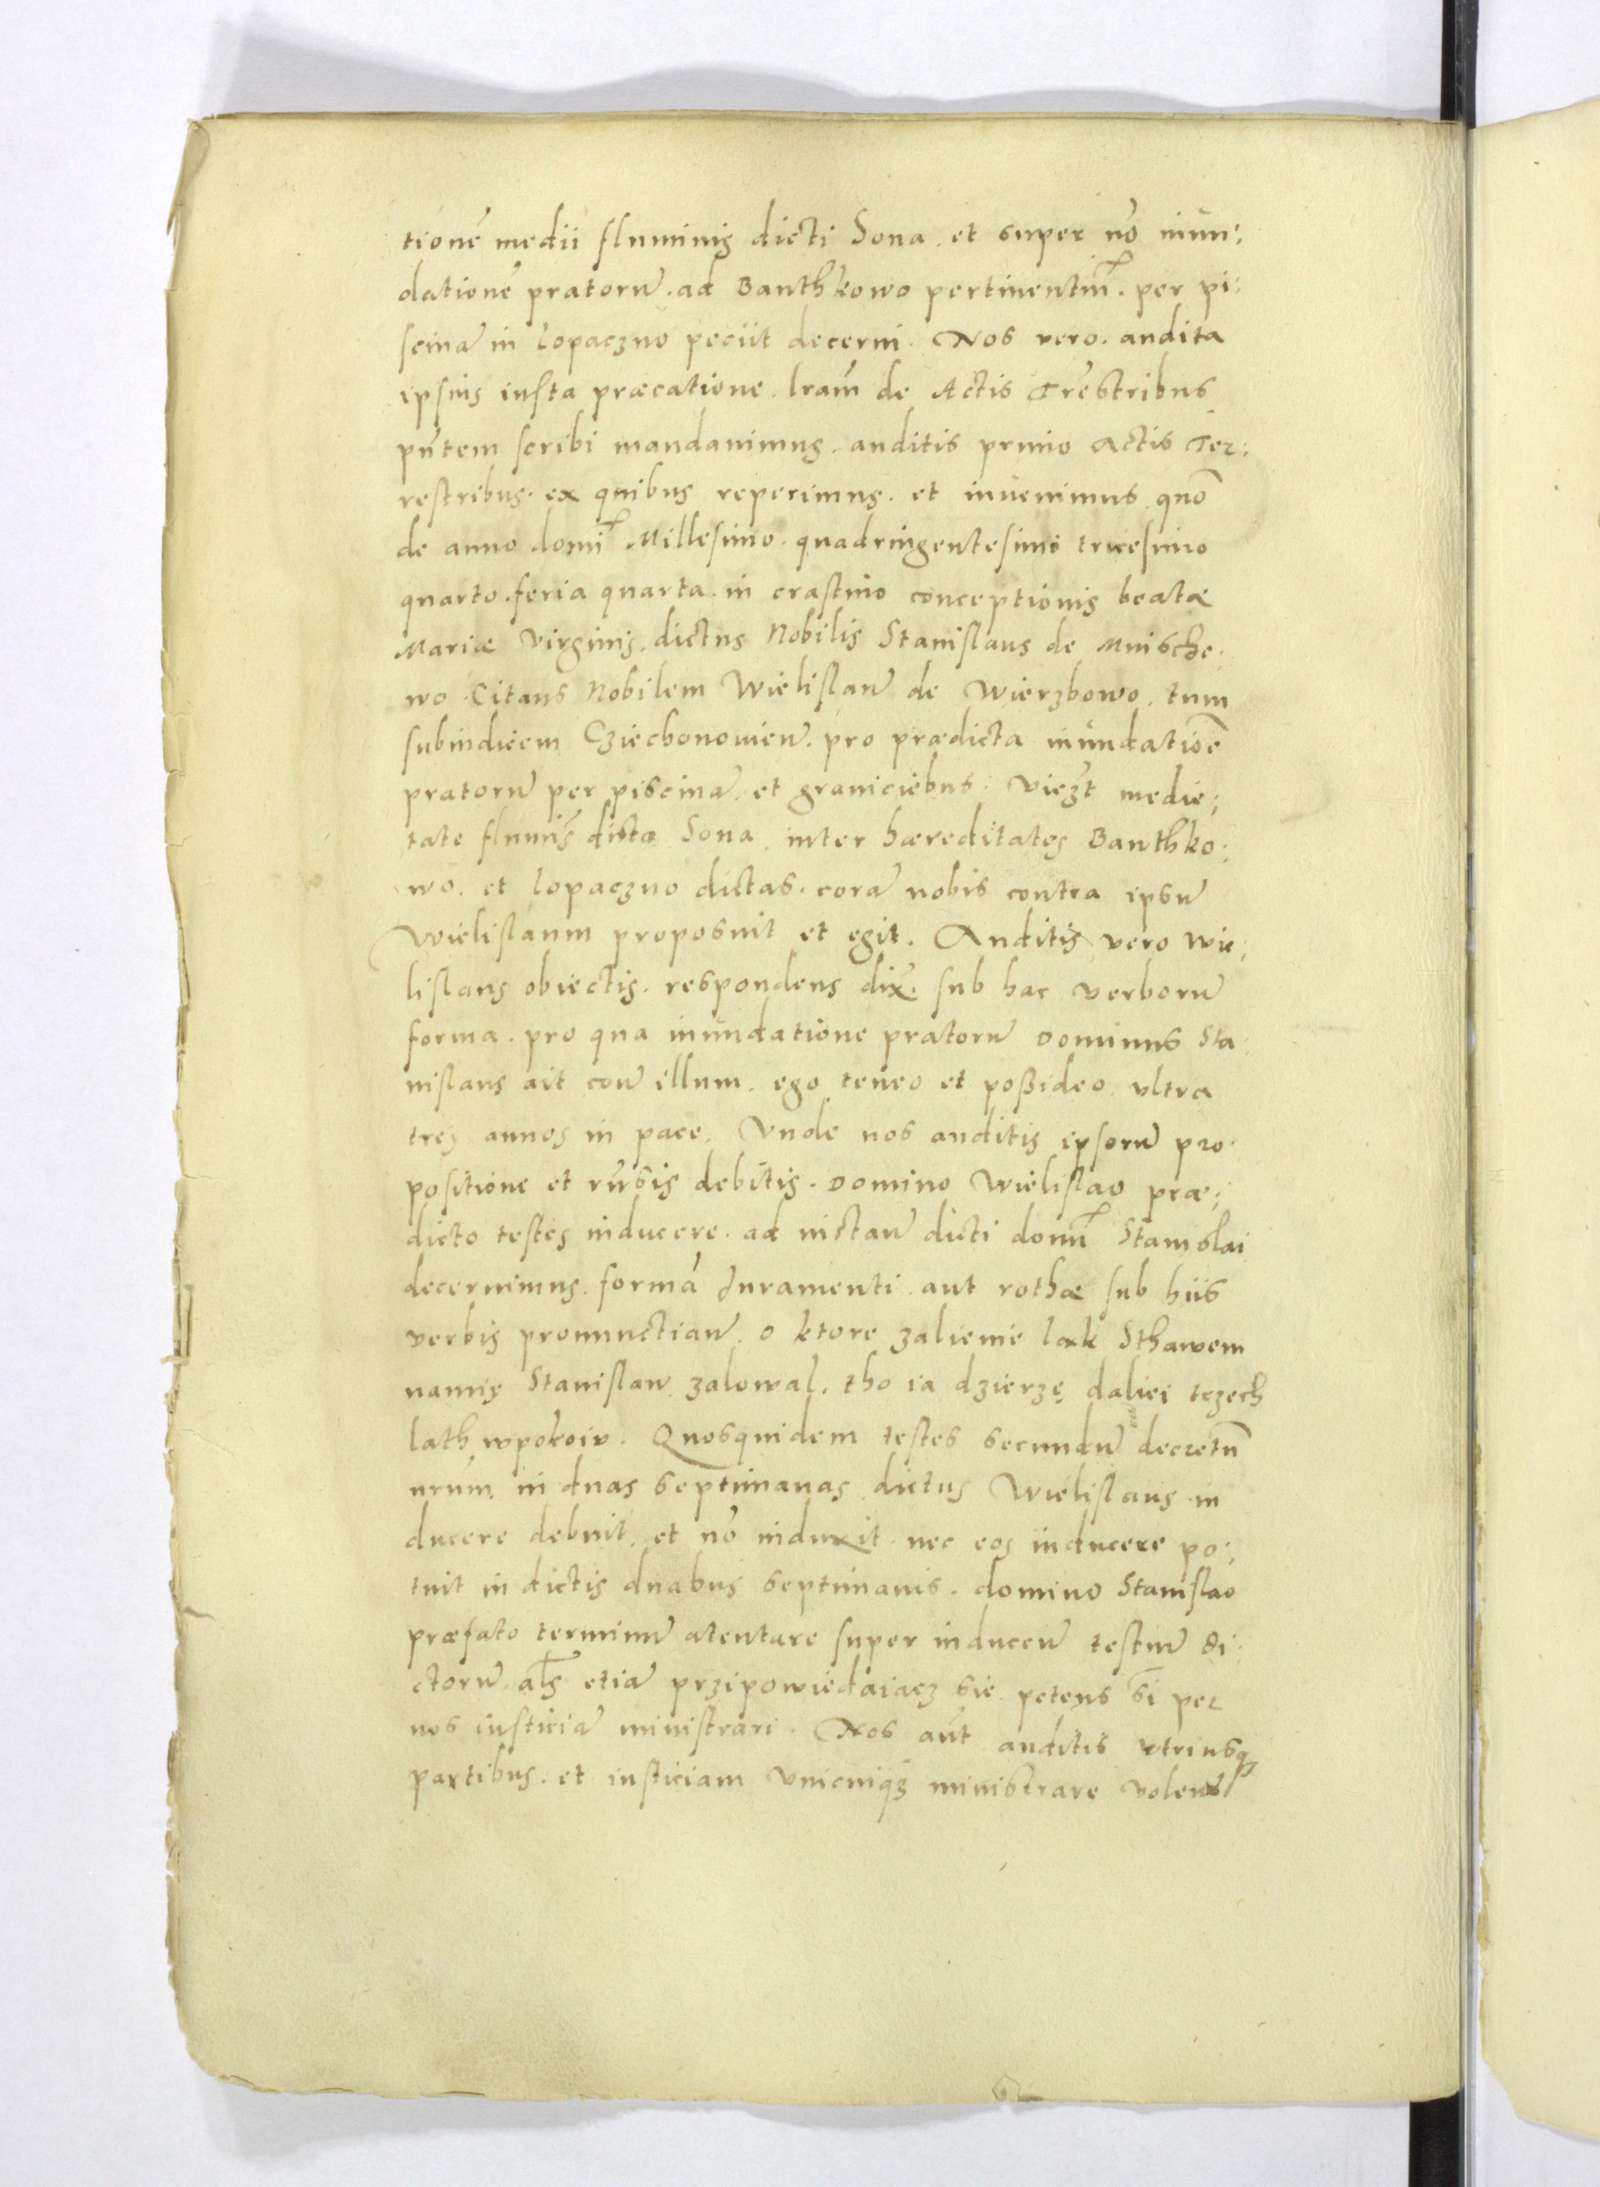 tionē medii fluminis dicti Sona. et super nō inun:
dationē pratorū. ad Banthkowo pertinentiū. per pi:
scinā in lopaczno peciit decerni. Nos vero. audita
ipsius iusta præcatione. lrām de Actis Trēstribus
pn̄tem scribi mandauimus. auditis primo Actis Ter:
restribus. ex quibus reperimus. et inuenimus quō
de anno domi Millesimo. quadringentesimo tricesimo
quarto. feria quarta. in crastino conceptionis beatæ
Mariæ Virginis. dictus Nobilis Stanislaus de Mnische:
wo. Citans Nobilem Wielislaū de Wierzbowo. tum
subiudicem Cziechonouień. pro prædicta inundatiōe
pratorū per piscinā. et graniciebus. Viezt medie:
tate flumīs dictæ Sona. inter hæreditates Banthko:
wo. et lopaczno dictas. corā nobis contra ipsū
Wielislaum proposuit et egit. Auditis vero Wie:
lislaus obiectis. respondens dix̄. sub hac verborū
forma. pro qua inundatione pratorū Dominus Sta:
nislaus ait con̄ illum. ego teneo et possideo vltra
tres annos in pace. Vnde nos auditis ipsorū pro:
positione et rn̄sis debitis. Domino Wielislao præ:
dicto testes inducere. ad instan̄ dicti domi Stanislai
decernimus. formā Juramenti. aut rothæ sub hiis
verbis pronunctian̄. o ktore zalienie lak Sthawem
namię Stanislaw zalowal. tho ia dzierzę daliei trzech
lath wpokoiv. Quosquidem testes secundū decretū
nrūm in duas septimanas dictus Wielislaus in
ducere debuit. et nō induxit nec eos inducere po:
tuit in dictis duabus septimanis. domino Stanislao
præfato terminū atentare super inducen̄ testiū di:
ctorū. als etiā przipowiedaiacz sie petens sī per
nos iusticiā ministrari. Nos aūt auditis vtriusqȝ
partibus. et iusticiam vnicuiqȝ ministrare volent